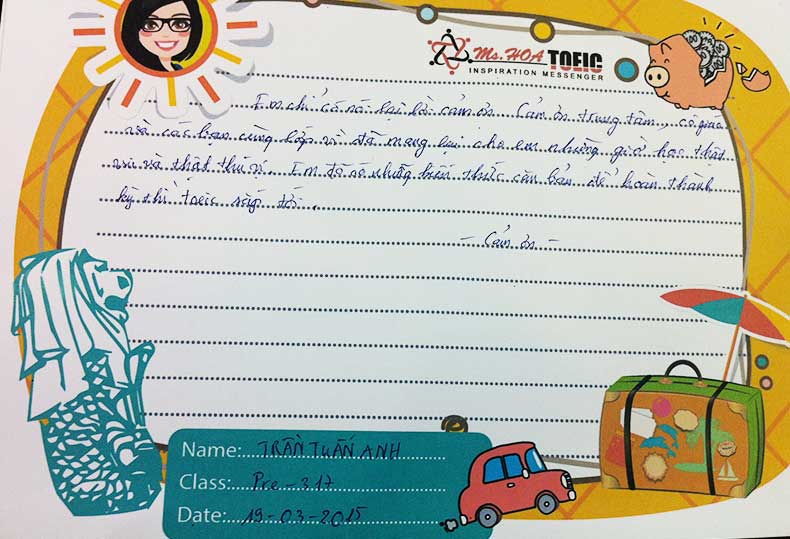 Ms. HOA TOEIC
INSPIRATION MESSENGER
Em chỉ có nói lại lời cảm ơn. Cảm ơn trung tâm, cô giáo
và các bạn cùng lớp vì đã mang lại cho em những giờ học thật
vui và thật thú vị. Em đã có những kiến thức căn bản để hoàn thành
kỳ thi toeic sắp tới.
- Cảm ơn -
Name: TRẦN TUẤN ANH
Class: Pre - 317
Date: 19-03-2015